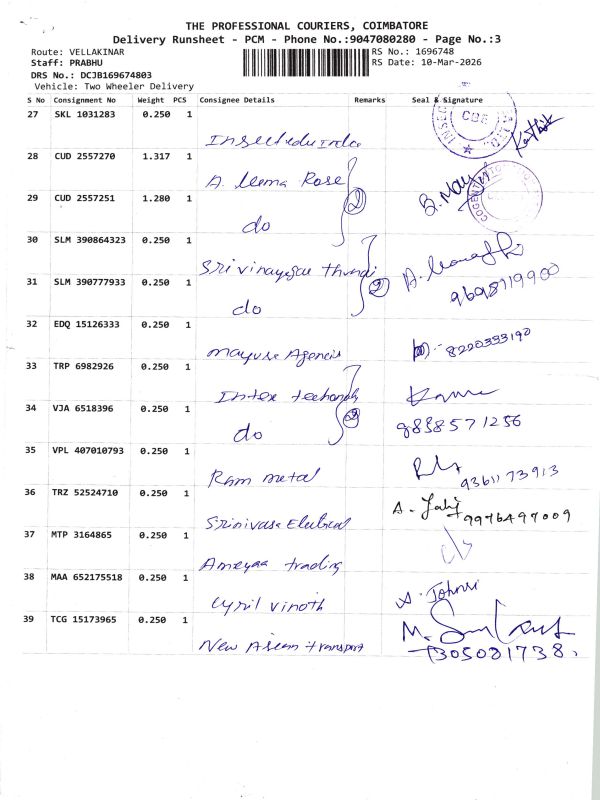 THE PROFESSIONAL COURIERS, COIMBATORE
Delivery Runsheet - PCM - Phone No.:9047080280 - Page No.:3
Route: VELLAKINAR
RS No.: 1696748
Staff: PRABHU
RS Date: 10-Mar-2026
DRS No.: DCJB169674803
Vehicle: Two Wheeler Delivery
S No Consignment No Weight PCS Consignee Details Remarks Seal & Signature
27 SKL 1031283 0.250 1
CBE
28 CUD 2557270 1.317 1
A. leema Rose
2
29 CUD 2557251 1.280 1
do
30 SLM 390864323 0.250 1
Srivinayagar
31 SLM 390777933 0.250 1
do
2
9698119900
32 EDQ 15126333 0.250 1
Mayura Agencis
8220333190
33 TRP 6982926 0.250 1
Intex
34 VJA 6518396 0.250 1
do
9838571256
35 VPL 407010793 0.250 1
Ram metal
9361173913
36 TRZ 52524710 0.250 1
Srinivasa Eletrical
9976497009
37 MTP 3164865 0.250 1
Ameyaa trading
38 MAA 652175518 0.250 1
Cyril vinoth
39 TCG 15173965 0.250 1
New Asian transport
7305081738.